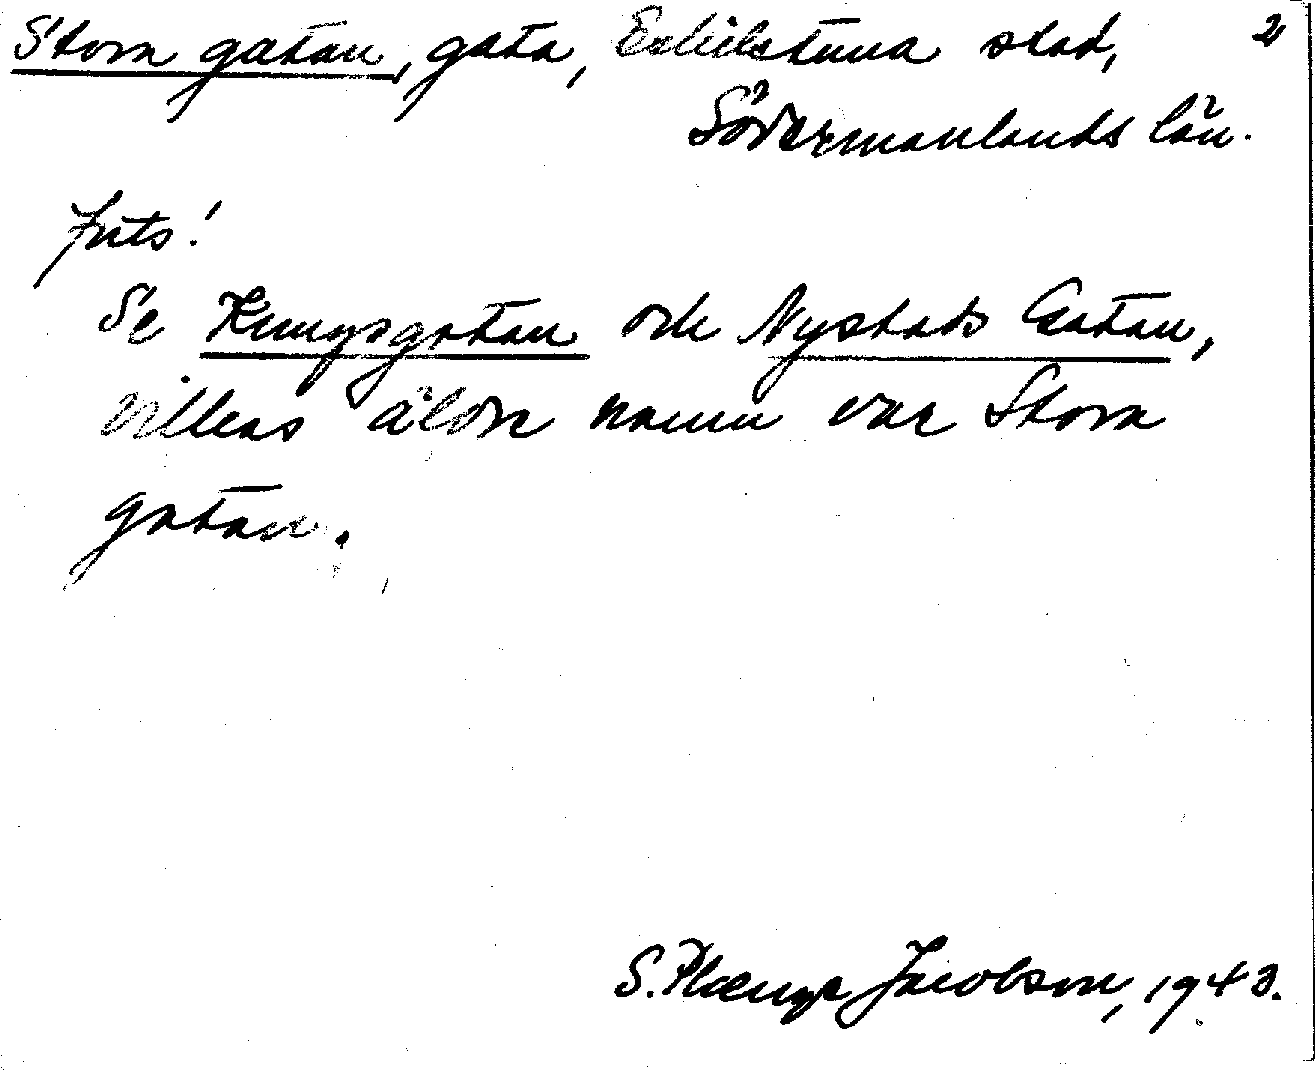 Stora gatan, gata, Eskilstuna stad, 2
Södermanlands län.
Juts!
Se Kungsgatan och Nystads Gatan,
villkas äldre namn var Stora
gatan.
S. Plænge Jacobson, 1943.